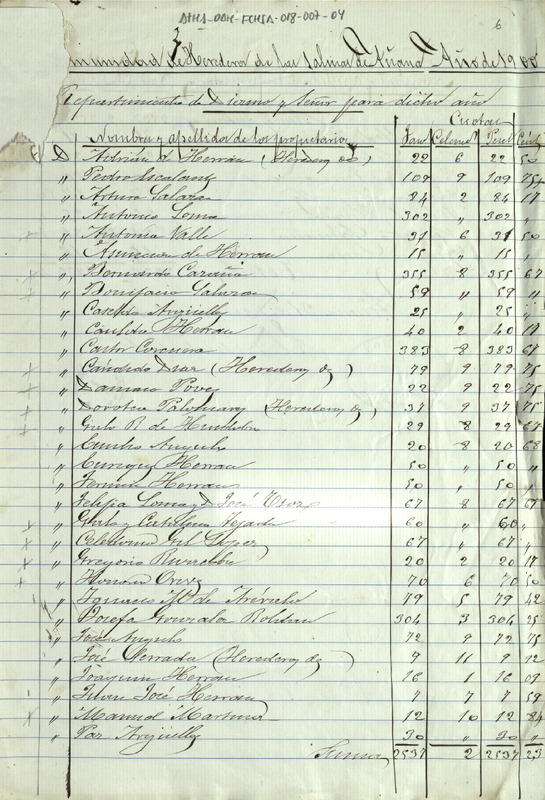 ATHA-DAH-FCHSA-018-007-04
6
Comunidad de Herederos de las Salinas de Añana Año de 1900
Repartimiento de Diezmo y Señor para dicho año
Cuotas
Nombres y apellidos de los propietarios Fans Celems Pests Cénts
D. Adrian de Herrán (Herederos de) 22 6 22 50
" Pedro Escalante 109 9 109 75
" Arturo Salazar 24 2 24 17
" Antonio Loma 302 " 302 "
" Antonia Valle 31 6 31 50
" Asuncion de Herran 15 " 15 "
" Bernardo 355 8 355 67
" Bonifacio Salazar 59 " 59 "
" Casilda Arguelles 25 " 25 "
" Cándido Herran 40 2 40 17
" Castor Corcuera 383 8 383 67
" Cándido Diaz (Herederos de) 79 9 79 75
" Damaso Poves 22 9 22 75
" Dorotea Palomares (Herederos de) 37 9 37 75
" R. de 29 8 29 67
" Emilio Angulo 20 8 20 68
" Enrique Herran 50 " 50 "
" Fermin Herran 50 " 50 "
" Felipa Loma y D. José 67 8 67 67
" y Catalina Tejada 60 " 60 "
" Celedonio Gil Lopez 67 " 67 "
" Gregorio 20 2 20 17
" Honorio 70 6 70 50
" Ignacio Mª de 79 5 79 42
" Josefa Gonzalez Roldan 304 3 304 25
" José Angulo 72 9 72 75
" José Terrada (Herederos de) 9 11 9 92
" Joaquin Herran 16 1 16 09
" Juan José Herran 7 7 7 59
" Manuel Martinez 12 10 12 84
" Paz Arguelles 30 " 30 "
Suma 2537 2 2537 23